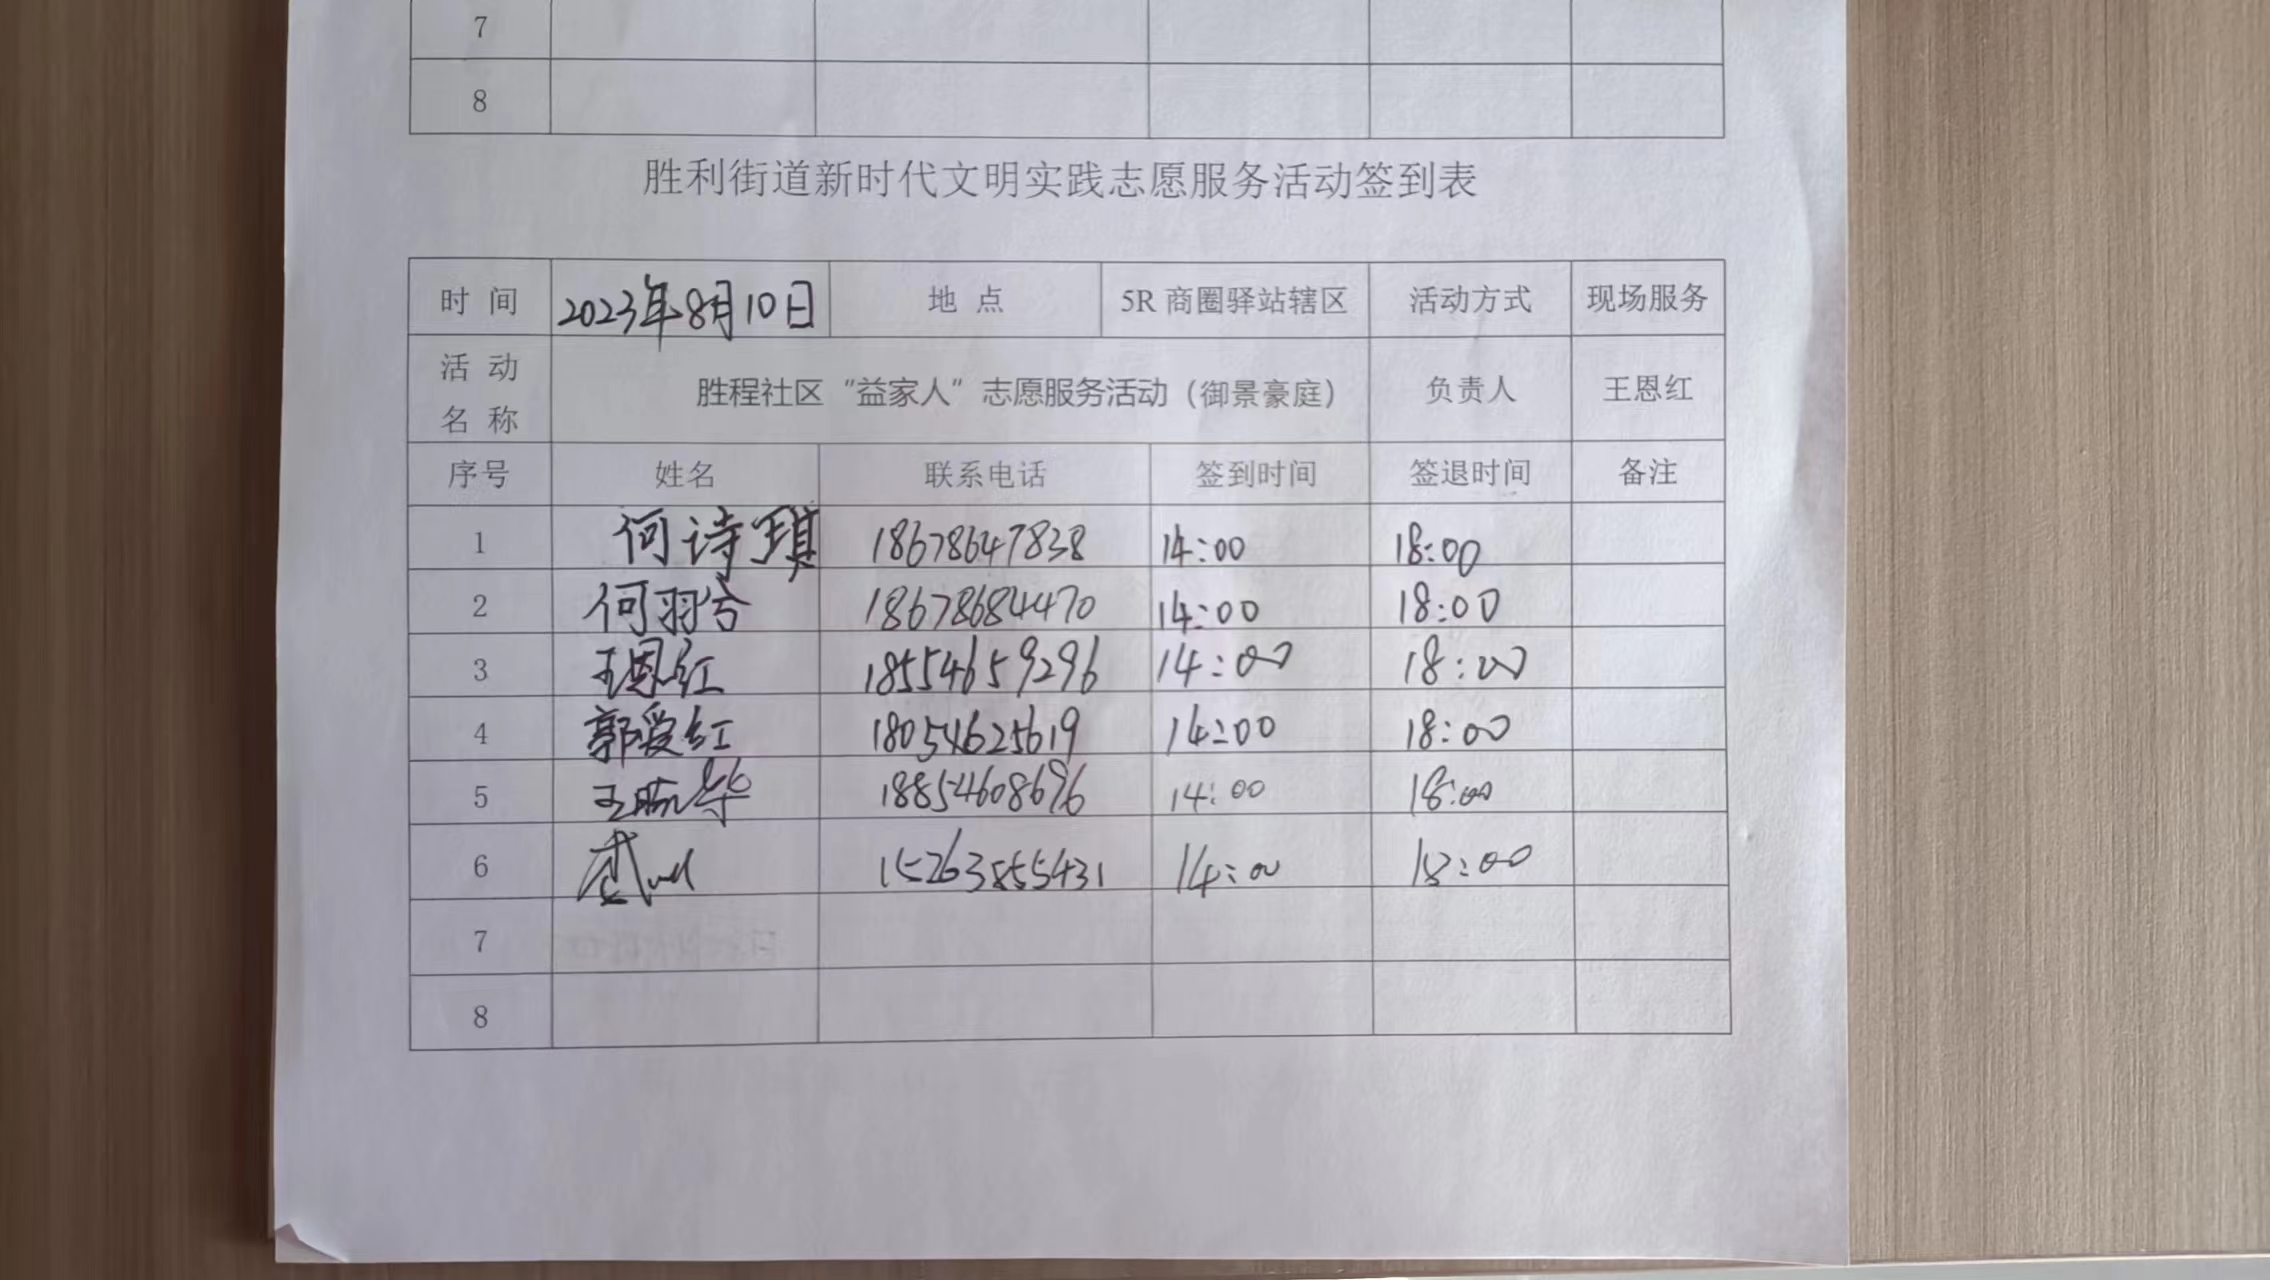 7
8
胜利街道新时代文明实践志愿服务活动签到表
时 间 2023年8月10日 地 点 5R 商圈驿站辖区 活动方式 现场服务
活 动 名 称 胜程社区“益家人”志愿服务活动（御景豪庭） 负责人 王恩红
序号 姓名 联系电话 签到时间 签退时间 备注
1 何诗琪 18678647838 14:00 18:00
2 何羽兮 18678684470 14:00 18:00
3 王恩红 18554659296 14:00 18:00
4 郭爱红 18054625619 14:00 18:00
5 王 华 18854608696 14:00 18:00
6 15263855431 14:00 18:00
7
8